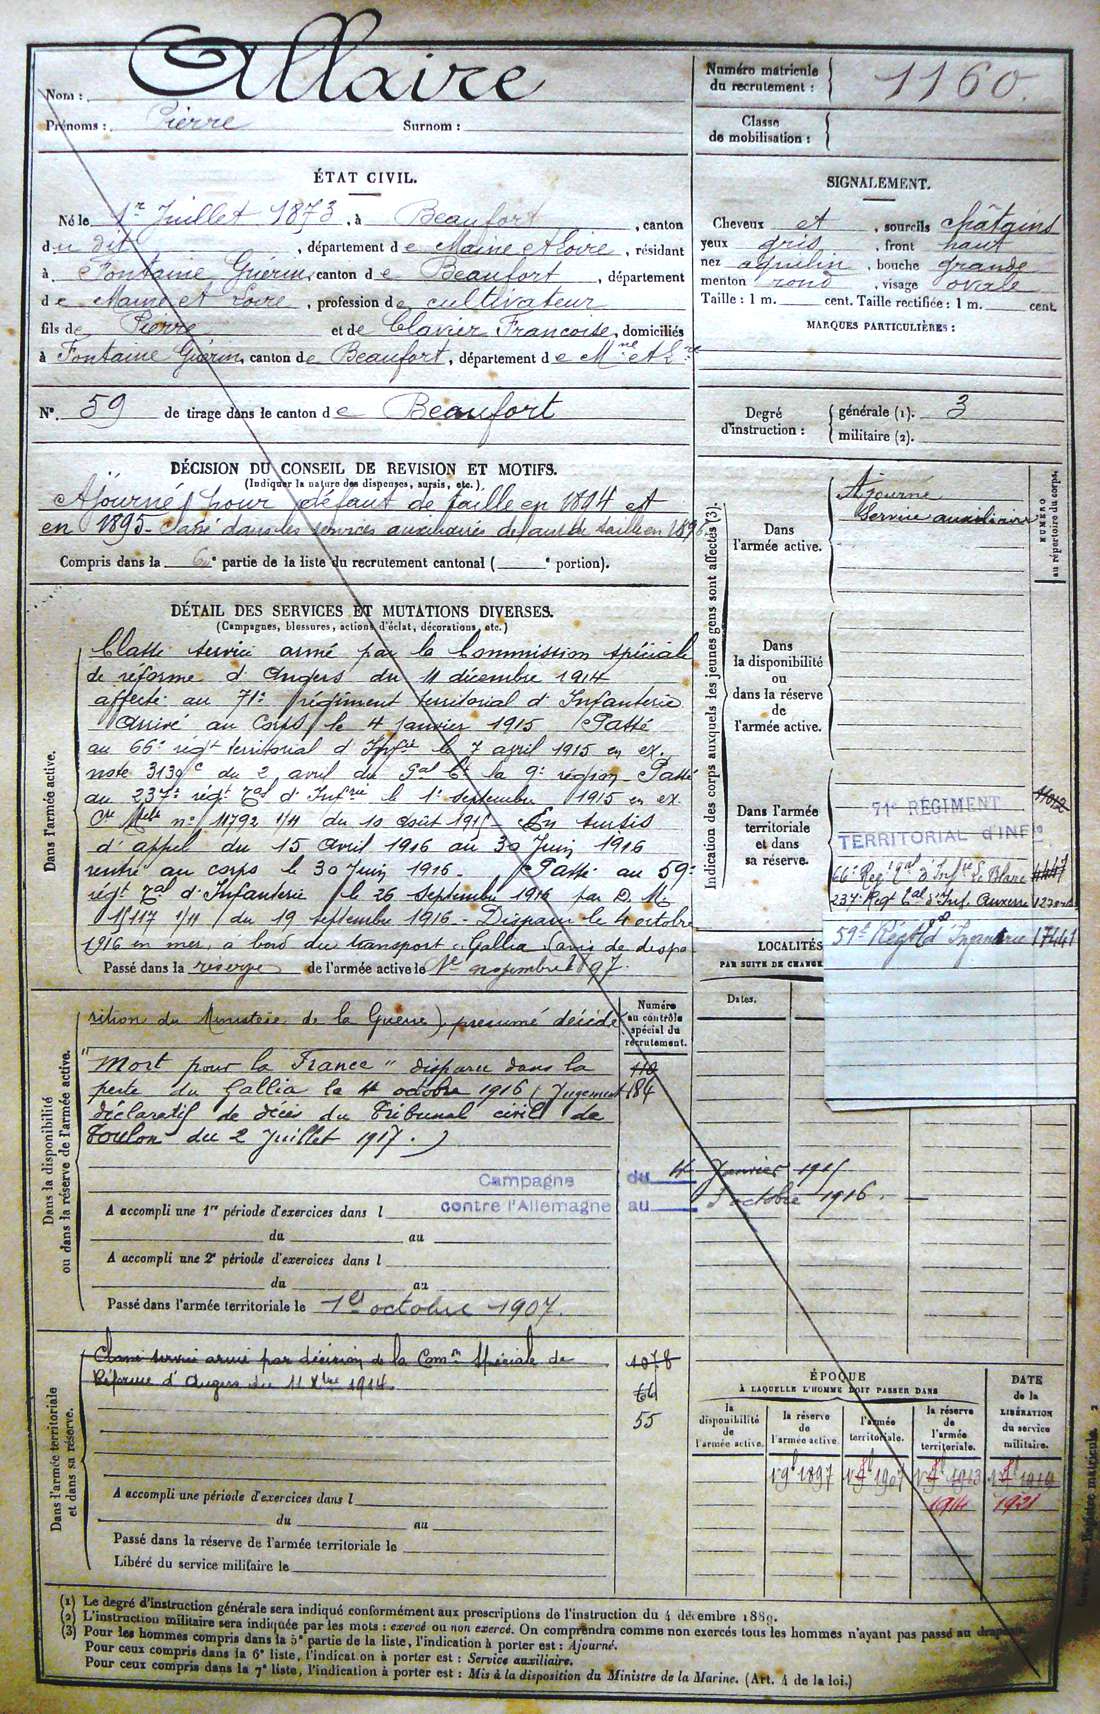 Nom : Allaire
Prénoms : Pierre Surnom :
Numéro matricule du recrutement : 1160.
Classe de mobilisation :
ÉTAT CIVIL.
Né le 1er Juillet 1873, à Beaufort, canton
du dit, département de Maine et Loire, résidant
à Fontaine Guérin, canton de Beaufort, département
de Maine et Loire, profession de cultivateur
fils de Pierre et de Clavier Françoise, domiciliés
à Fontaine Guérin, canton de Beaufort, département de Mne et Lre
N°. 59 de tirage dans le canton de Beaufort
SIGNALEMENT.
Cheveux et, sourcils châtains
yeux gris, front haut
nez aquilin, bouche grande
menton rond, visage ovale
Taille : 1 m. cent. Taille rectifiée : 1 m. cent.
MARQUES PARTICULIÈRES :
Degré d'instruction : générale (1). 3
militaire (2).
DÉCISION DU CONSEIL DE REVISION ET MOTIFS.
(Indiquer la nature des dispenses, sursis, etc.).
Ajourné pour défaut de taille en 1894 et
en 1895 - Classé dans les services auxiliaires défaut de taille en 1896
Compris dans la 6e partie de la liste du recrutement cantonal ( e portion).
DÉTAIL DES SERVICES ET MUTATIONS DIVERSES.
(Campagnes, blessures, actions d'éclat, décorations, etc.)
Dans l'armée active.
Classé service armé par la Commission spéciale
de réforme d'Angers du 11 décembre 1914
affecté au 71e régiment territorial d'Infanterie
Arrivé au Corps le 4 janvier 1915 Passé
au 66e régt territorial d'Infie le 7 avril 1915 en ex.
note 3139 c du 2 avril du Gal Ct la 9e région - Passé
au 237e régt Tal d'Infrie le 1er septembre 1915 en ex
Cre Mlle n° 11792 1/11 du 10 août 1915 - En sursis
d'appel du 15 avril 1916 au 30 Juin 1916
rentré au corps le 30 Juin 1916 - Passé au 59e
régt Tal d'Infanterie le 26 septembre 1916 par D. M.
15117 1/11 du 19 septembre 1916 - Disparu le 4 octobre
1916 en mer, à bord du transport "Gallia" (avis de dispa-
Passé dans la réserve de l'armée active le 1er novembre 1897.
Indication des corps auxquels les jeunes gens sont affectés (3).
NUMÉRO au répertoire du corps.
Dans l'armée active.
Ajourné
Service auxiliaire
Dans la disponibilité ou dans la réserve de l'armée active.
Dans l'armée territoriale et dans sa réserve.
71e RÉGIMENT
TERRITORIAL d'INFie
66e Régt Tal d'Infie Le Blanc
237e Régt Tal d'Inf. Auxerre
59e Régt Tal d'Infanterie 17441
LOCALITÉS
PAR SUITE DE CHANGE
Dates.
Dans la disponibilité ou dans la réserve de l'armée active.
Numéro au contrôle spécial du recrutement.
rition du Ministère de la Guerre), présumé décédé
"Mort pour la France" disparu dans la
perte du Gallia le 4 octobre 1916 (Jugement
184
déclaratif de décès du Tribunal civil de
Toulon du 2 Juillet 1917.)
Campagne du 4 Janvier 1915
contre l'Allemagne au octobre 1916.
A accompli une 1re période d'exercices dans l
du au
A accompli une 2e période d'exercices dans l
du au
Passé dans l'armée territoriale le 1er octobre 1907.
Dans l'armée territoriale et dans sa réserve.
Classé service armé par décision de la Comon Spéciale de
Réforme d'Angers du 11 Xbre 1914.
1078
66
55
A accompli une période d'exercices dans l
du au
Passé dans la réserve de l'armée territoriale le
Libéré du service militaire le
ÉPOQUE
À LAQUELLE L'HOMME DOIT PASSER DANS
la disponibilité de l'armée active.
la réserve de l'armée active.
l'armée territoriale.
la réserve de l'armée territoriale.
DATE de la LIBÉRATION du service militaire.
1 9b 1897 1907 1913 1919
1914 1921
(1) Le degré d'instruction générale sera indiqué conformément aux prescriptions de l'instruction du 4 décembre 1889.
(2) L'instruction militaire sera indiquée par les mots : exercé ou non exercé. On comprendra comme non exercés tous les hommes n'ayant pas passé au drapeau.
(3) Pour les hommes compris dans la 5e partie de la liste, l'indication à porter est : Ajourné.
Pour ceux compris dans la 6e liste, l'indication à porter est : Service auxiliaire.
Pour ceux compris dans la 7e liste, l'indication à porter est : Mis à la disposition du Ministre de la Marine. (Art. 4 de la loi.)